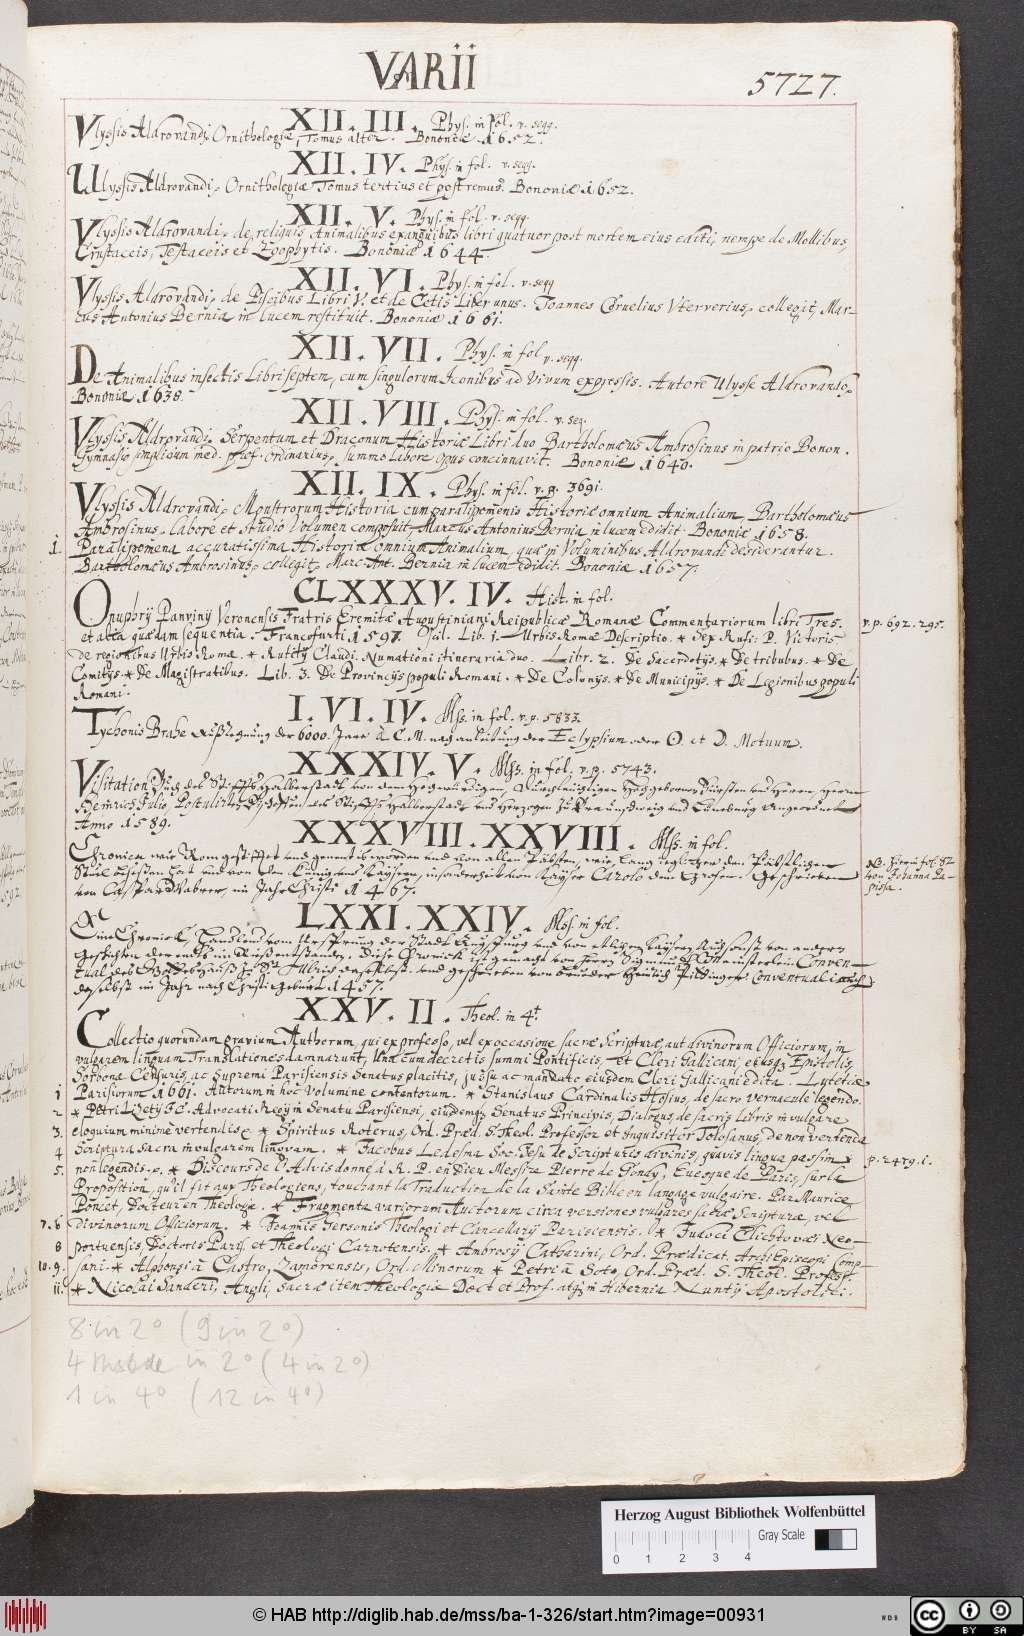 VARII
5727.
XII. III. Phys. in fol. v. seqq.
Vlyssis Aldrovandi, Ornithologiæ, Tomus alter. Bononiæ 1652.
XII. IV. Phys. in fol. v. seqq.
Ulyssis Aldrovandi, Ornithologiæ Tomus tertius et postremus. Bononiæ 1652.
XII. V. Phys. in fol. v. seqq.
Vlyssis Aldrovandi, de reliquis Animalibus exanguibus libri quatuor post mortem eius editi, nempe de Mollibus,
Crustaceis, Testaceis et Zoophytis. Bononiæ 1644.
XII. VI. Phys. in fol. v. seqq
Vlyssis Aldrovandi, de Piscibus Libri V. et de Cetis Liber unus. Joannes Cornelius Vterverius, collegit, Mar-
cus Antonius Bernia in lucem restituit. Bononiæ 1661.
XII. VII. Phys. in fol v. seqq.
De Animalibus insectis Libri septem, cum singulorum Iconibus ad vivum expressis. Autore Ulysse Aldrovando,
Bononiæ 1638.
XII. VIII. Phys. in fol. v. seq.
Vlyssis Aldrovandi, Serpentum et Draconum Historiæ Libri duo Bartholomæus Ambrosinus in patrio Bonon.
Gymnasio simplicium med. prof. ordinarius, summo labore opus concinnavit. Bononiæ 1640.
XII. IX. Phys. in fol. v. p. 3691.
Vlyssis Aldrovandi, Monstrorum Historia cum paralipomenis Historiæ omnium Animalium, Bartholomæus
Ambrosinus, labore et studio Volumen composuit, Marcus Antonius Bernia in lucem edidit. Bononiæ 1658.
1. Paralipomena accuratissima Historiæ omnium Animalium, quæ in Voluminibus Aldrovandi desiderantur.
Bartholomæus Ambrosinus, collegit, Marc. Ant. Bernia in lucem edidit. Bononiæ 1657.
CLXXXV. IV. Hist. in fol.
Onuphrij Panvinij Veronensis Fratris Eremitæ Augustiniani Reipublicæ Romanæ Commentariorum libri Tres. v. p. 692. 295.
et alia quædam sequentia. Francofurti 1597. Scil. Lib. 1. Urbis Romæ Descriptio. * Sex Rufi: P. Victoris
de regionibus Urbis Romæ. * Rutily Claudi. Numatiani itineraria duo. Libr. 2. De Sacerdotijs. * De tribubus. * De
Comitijs. * De Magistratibus. Lib. 3. De Provincijs populi Romani. * De Colonijs. * De Municipijs. * De Legionibus populi
Romani.
I. VI. IV. Mss. in fol. v. p. 5833.
Tychonis Brahe Außlegnung der 6000. Jare à C. M. nach anleitung der Eclypsium oder ☉. et ☽. Motuum.
XXXIV. V. Mss. in fol. v. p. 5743.
Visitation Buch des Stiffts Halberstadt von dem Hochwürdigen, Durchleuchtigen Hochgebornen Fürsten und Herren, Herrn
Heinrico Julio, Postulirten Bischoffen des Stiffts Halberstadt, und Hertzogen zu Braunschweig und Lüneburg Angeordnet
Anno 1589.
XXXVIII. XXVIII. Mss. in fol.
Chronica wie Rom gestifftet und genent ist worden und von allen Bäbsten, wie lang ieglicher den Päbstlichen
Stuel besessen hat und von den Künigen und Kaysern, insonderheit von Kayser Carolo dem Grosen. Geschrieben
von Caspard Vabrer, im Jahr Christi 1467.
NB. hierin fol. 92
von Johanna Pa-
pissa.
LXXI. XXIV. Mss. in fol.
Eine Chronick, Handlend vom Ursprung der Stadt Augspurg und von etlichen Kaysern Auch sonst von andern
Geschichten der ends im Rieß entstanden. Diese Chronick ist gemacht von Herrn Sigmund Meisterlein Conven-
tual des Gottshauß zu St. Ulrich daselbst. und geschrieben von Bruder Heinrich Pittinger Conventual auch
daselbst im Jahr nach Christi Geburt 1457.
XXV. II. Theol. in 4t.
Collectio quorundam gravium Authorum, qui ex professo, vel ex occasione sacræ Scripturæ, aut divinorum Officiorum, in
vulgarem linguam Translationes damnarunt, Una cum decretis summi Pontificis, et Cleri Gallicani, ejusq; Epistolis,
Sorbonæ Censuris, ac Supremi Parisiensis Senatus placitis, jussu ac mandato eiusdem Cleri Gallicani edita. Lutetiæ
1 Parisiorum 1661. Autorum in hoc Volumine contentorum. * Stanislaus Cardinalis Hosius, de sacro vernacule legendo.
2 * Petri Lizetij JC. Advocati Regij in Senatu Parisiensi, eiudemq; Senatus Principis, Dialogus, de sacris libris in vulgare
3. eloquium minime vertendis &c * Spiritus Roterus, Ord. Præd. S. Theol. Professor et Inquisitor Tolosanus, de non vertenda
4 Scriptura Sacra in vulgarem linguam. * Jacobus Ledesma Soc. Jesu de Scripturis divinis, quavis lingua passim p. 2479. 1.
5. non legendis. * Discours de l'Advis donné à R. P. en Dieu Messire Pierre de Gondy, Evesque de Paris, sur la
Proposition, qu'il fit aux Theologiens, touchant la Traduction de la Sainte Bible en langage vulgaire. Par Maurice
Poncet, Docteur en Theologie. * Fragmenta variorum Auctorum circa versiones vulgares sacræ Scripturæ, vel
7. 6 divinorum Officiorum. * Joannis Gersonis Theologi et Cancellarij Parisiensis. * Judoci Clichtovæi Neo-
8 portuensis, Doctoris Paris. et Theologi Carnotensis. * Ambrosij Catharini, Ord. Prædicat. ArchiEpiscopi Comp-
10. 9. sani. * Alphonsi à Castro, Zamorensis, Ord. Minorum * Petri à Soto, Ord. Præd. S. Theol. Profess.
11. * Nicolai Sanderi, Angli, Sacræ item Theologiæ Doct et Prof. atq; in Hibernia Nuntij Apostolici.
8 in 2° (9 in 2°)
4 Mss in 2° (4 in 2°)
1 in 4° (12 in 4°)
Herzog August Bibliothek Wolfenbüttel
Gray Scale
0 1 2 3 4
© HAB http://diglib.hab.de/mss/ba-1-326/start.htm?image=00931
WDB
cc BY SA